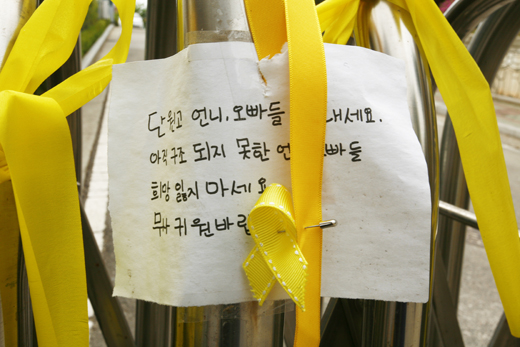 단원고 언니, 오빠들 내세요.
아직 구조 되지 못한 언 빠들
희망 잃지 마세요
무사 귀원바랍